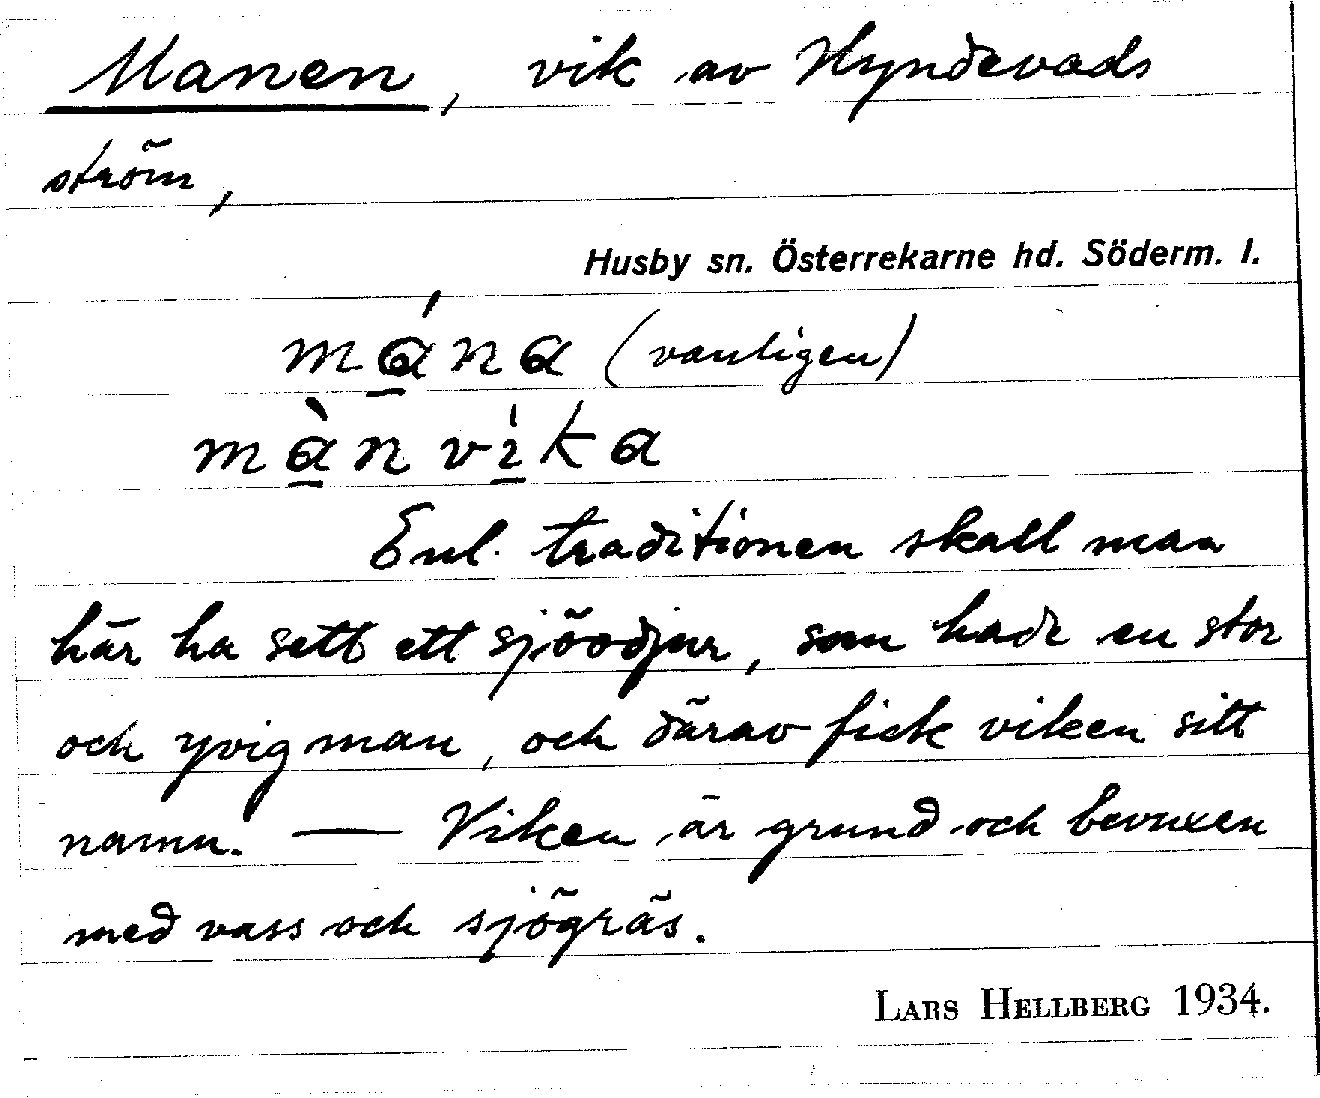 Manen, vik av Hyndevads
ström,
Husby sn. Österrekarne hd. Söderm. l.
má̱na (vanligen)
mà̱n vi̱̍ka
Enl. traditionen skall man
här ha sett ett sjöodjur, som hade en stor
och yvig man, och därav fick viken sitt
namn. — Viken är grund och bevuxen
med vass och sjögräs.
LARS HELLBERG 1934.